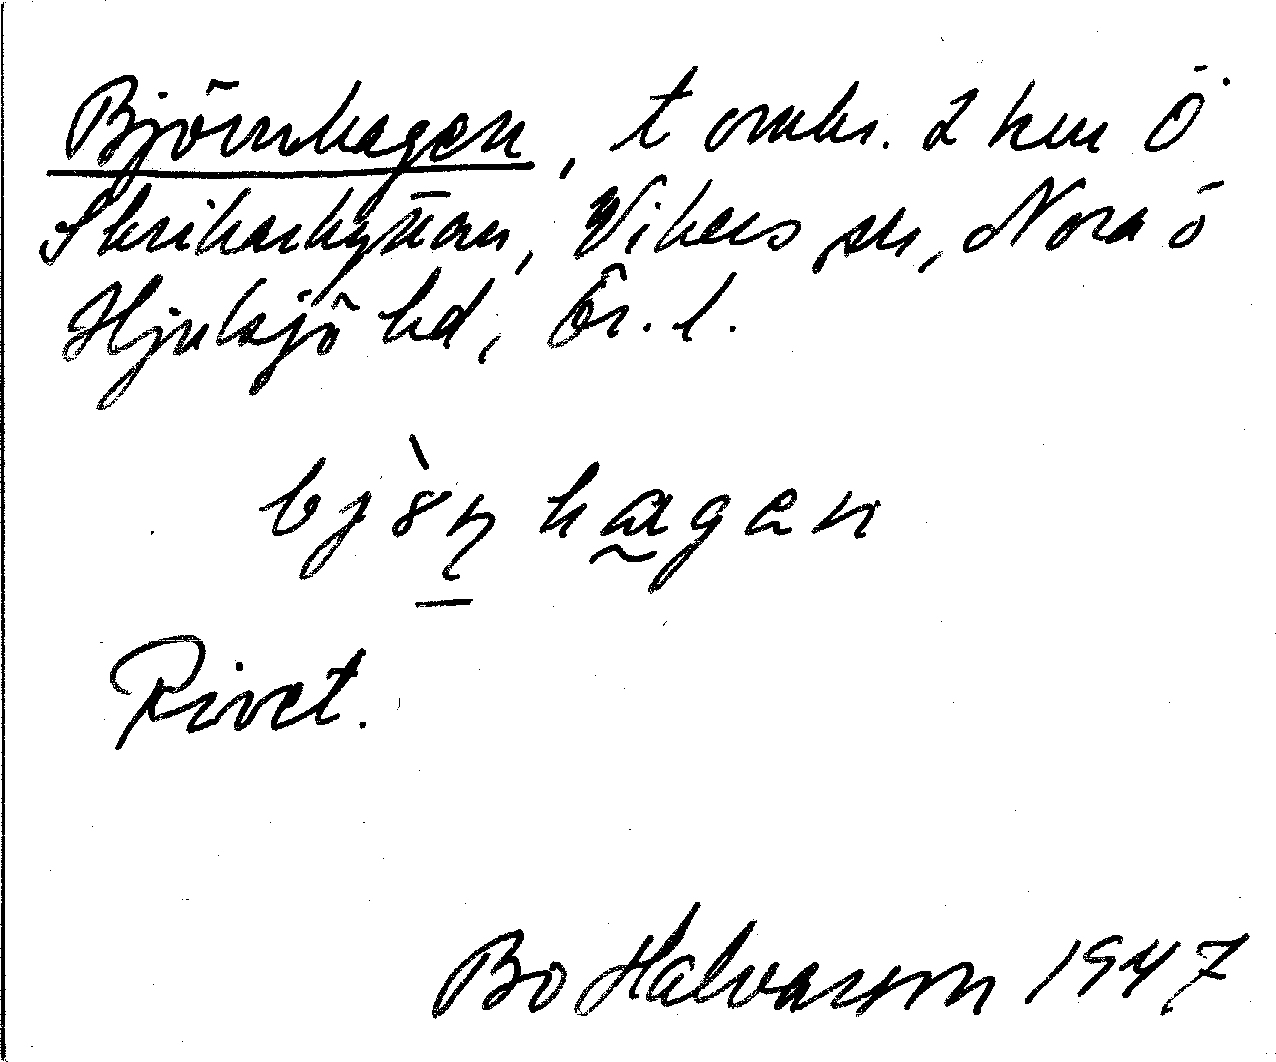 Björnhagen, t omkr. 2 km Ö
Skrikarhyttan, Vikers sn, Nora o
Hjulsjö hd, Ör. l.
bjö̀n hagen
Rivet.
Bo Halvarson 1947